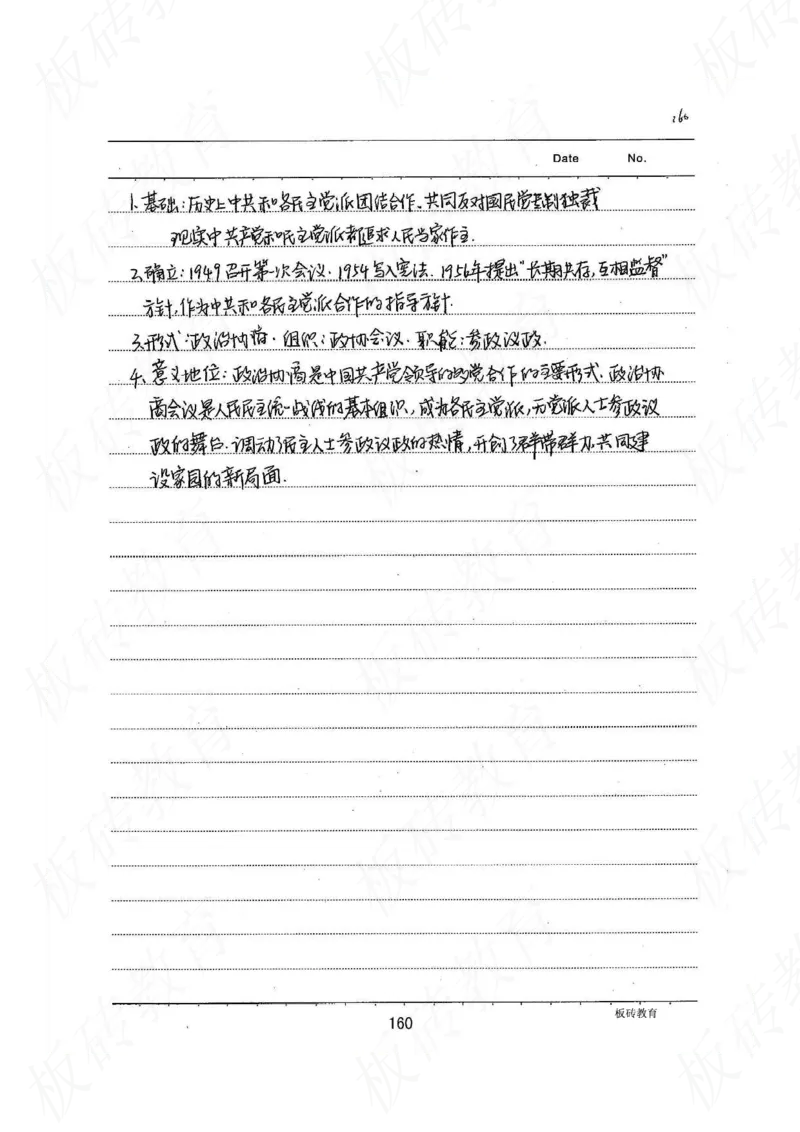 160
Date No.
1.基础:历史上中共和各民主党派团结合作、共同反对国民党专制独裁
现实中共产党和民主党派都追求人民当家作主.
2.确立:1949召开第一次会议.1954写入宪法.1956年提出"长期共存,互相监督"
方针,作为中共和各民主党派合作的指导方针.
3.形式:政治协商.组织:政协会议.职能:参政议政.
4.意义地位:政治协商是中国共产党领导的多党合作的主要形式.政治协
商会议是人民民主统一战线的基本组织,成为各民主党派,无党派人士参政议
政的舞台.调动了民主人士参政议政的热情,开创了群策群力,共同建
设家园的新局面.
板砖教育
160